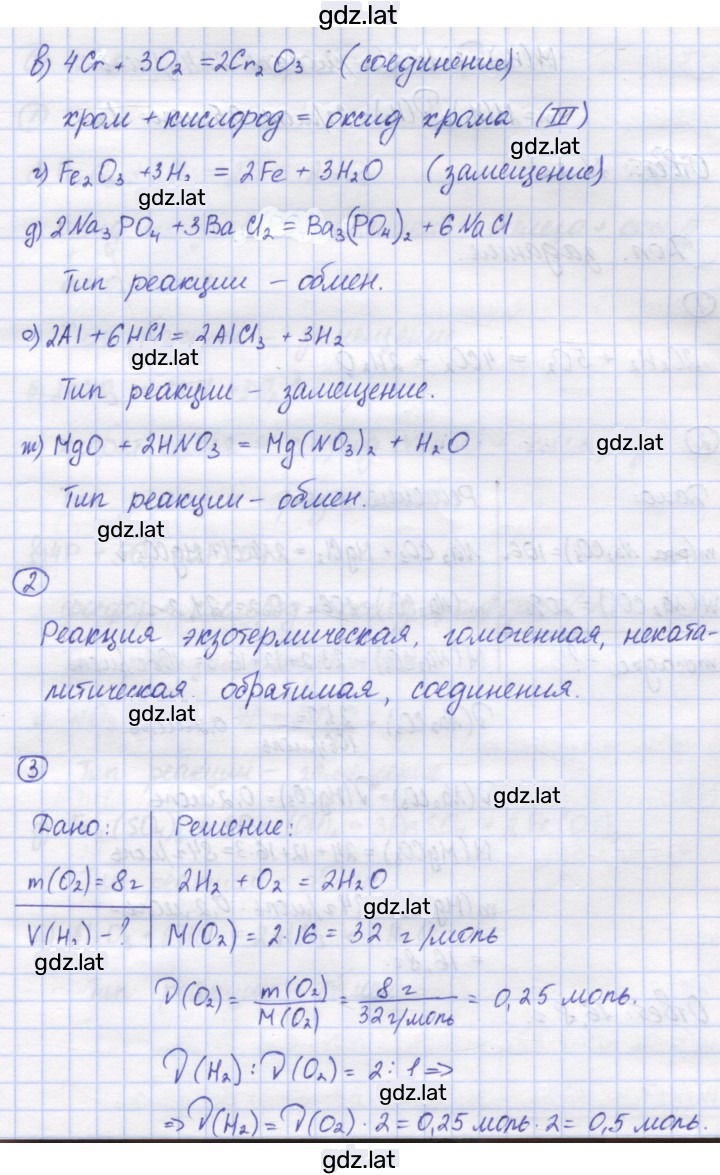 gdz.lat
в) 4Cr + 3O₂ = 2Cr₂O₃ (соединение)
хром + кислород = оксид хрома (III)
gdz.lat
г) Fe₂O₃ + 3H₂ = 2Fe + 3H₂O (замещение)
gdz.lat
д) 2Na₃PO₄ + 3BaCl₂ = Ba₃(PO₄)₂ + 6NaCl
Тип реакции – обмен.
е) 2Al + 6HCl = 2AlCl₃ + 3H₂
gdz.lat
Тип реакции – замещение.
ж) MgO + 2HNO₃ = Mg(NO₃)₂ + H₂O
gdz.lat
Тип реакции – обмен.
gdz.lat
2
Реакция экзотермическая, гомогенная, неката-
литическая обратимая, соединения.
gdz.lat
3
gdz.lat
Дано: Решение:
m(O₂) = 8 г 2H₂ + O₂ = 2H₂O
gdz.lat
V(H₂) – ? M(O₂) = 2·16 = 32 г/моль
gdz.lat
ν(O₂) = m(O₂)/M(O₂) = 8 г/32 г/моль = 0,25 моль.
ν(H₂) : ν(O₂) = 2 : 1 =>
gdz.lat
=> ν(H₂) = ν(O₂) · 2 = 0,25 моль · 2 = 0,5 моль.
gdz.lat